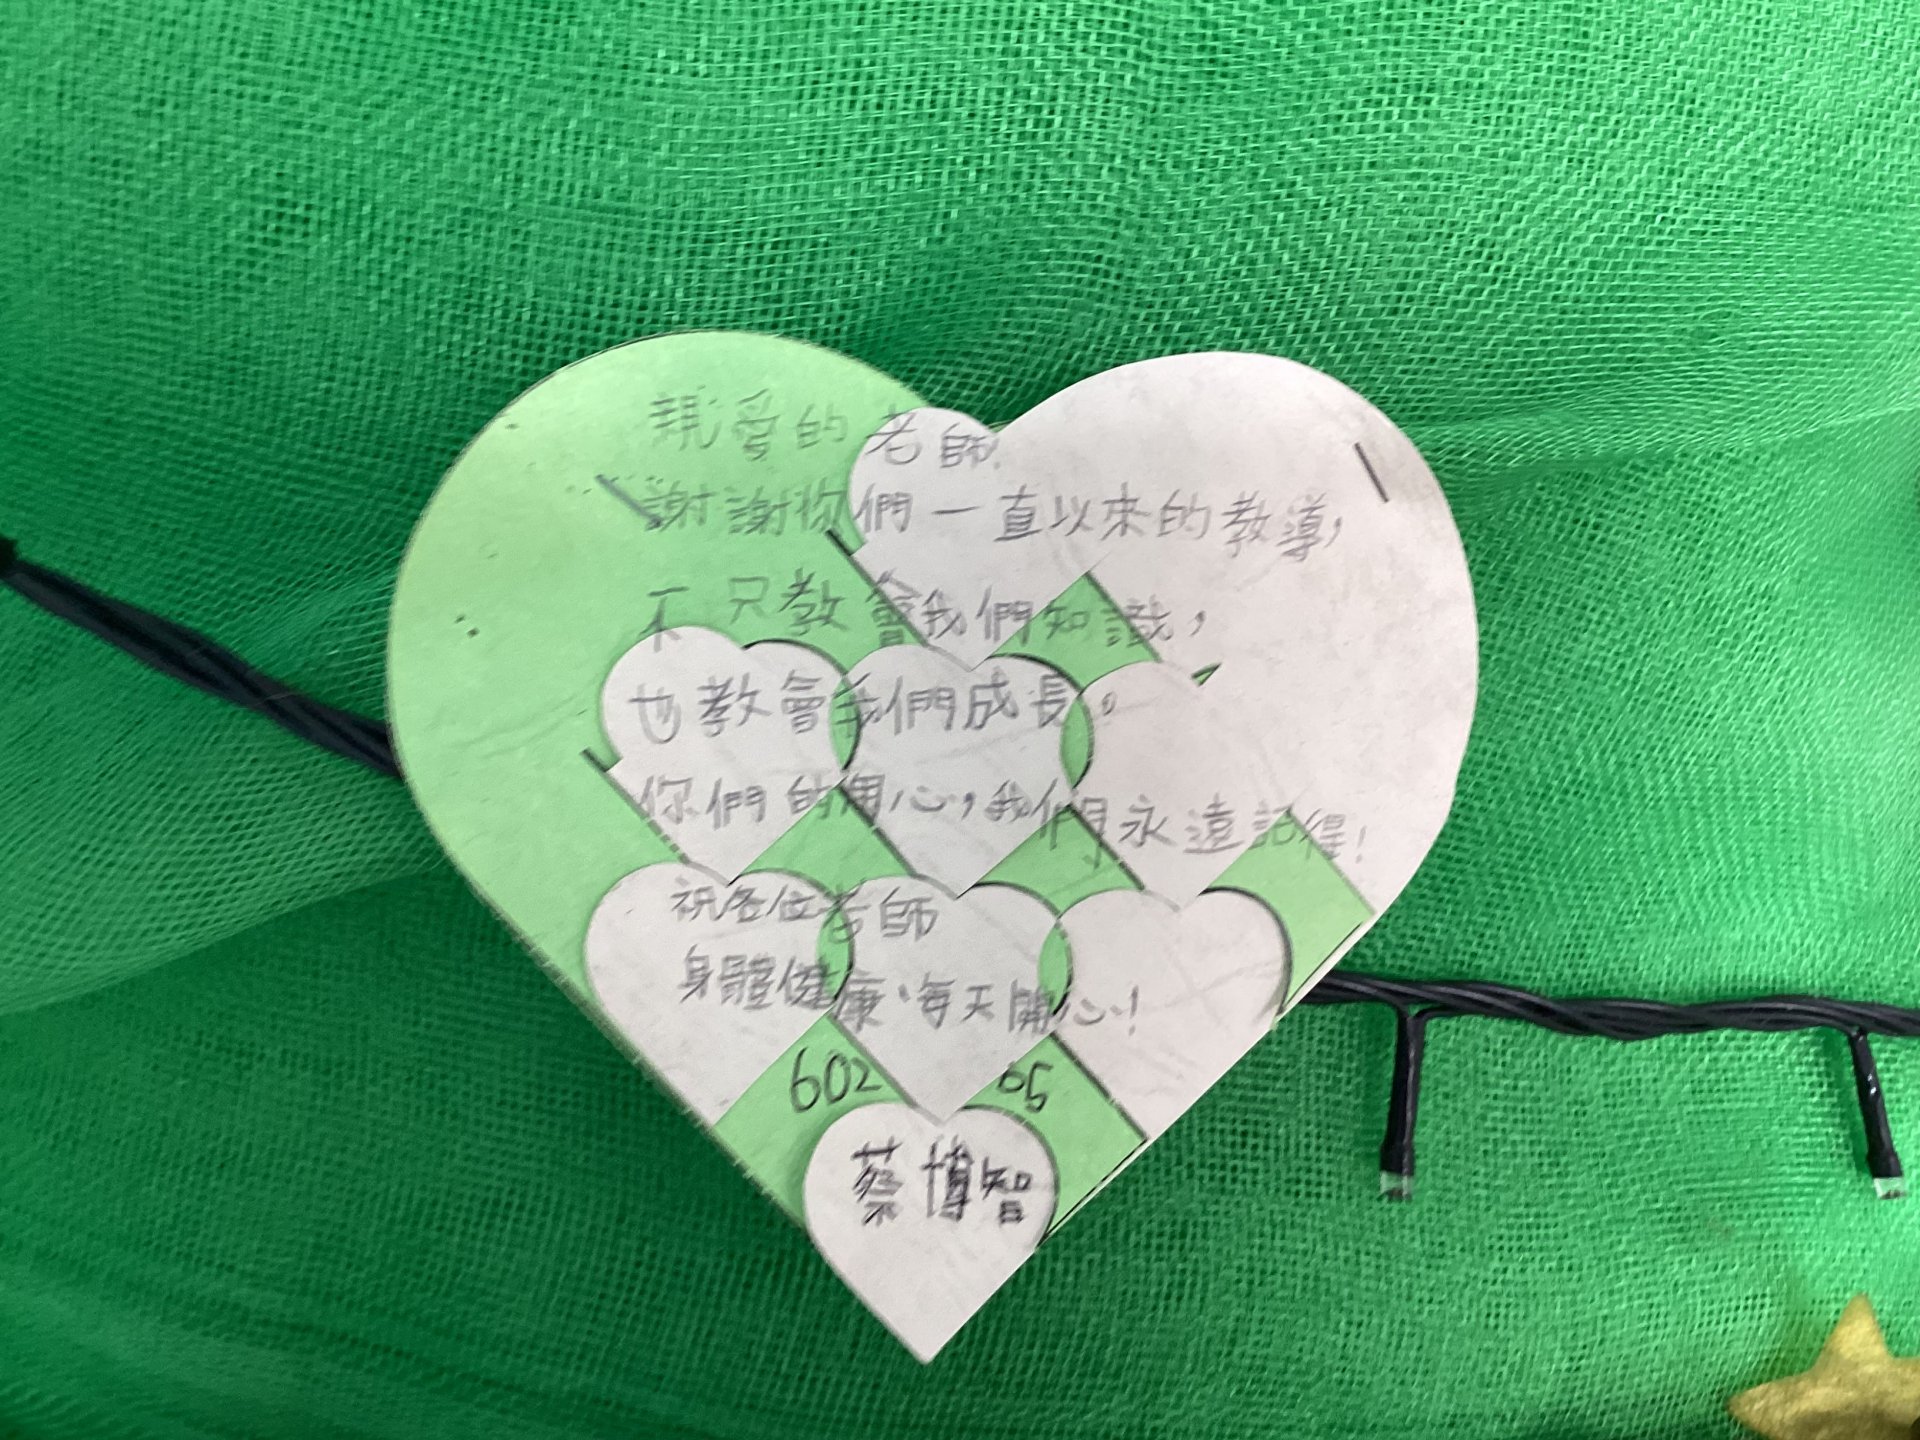 親愛的老師:
謝謝你們一直以來的教導,
不只教會我們知識,
也教會我們成長。
你們的用心,我們永遠記得!
祝各位老師
身體健康,每天開心!
602 05
蔡博智